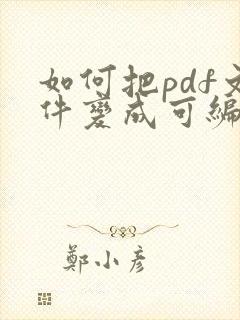 如何把pdf文
件變成可編
鄭小彥